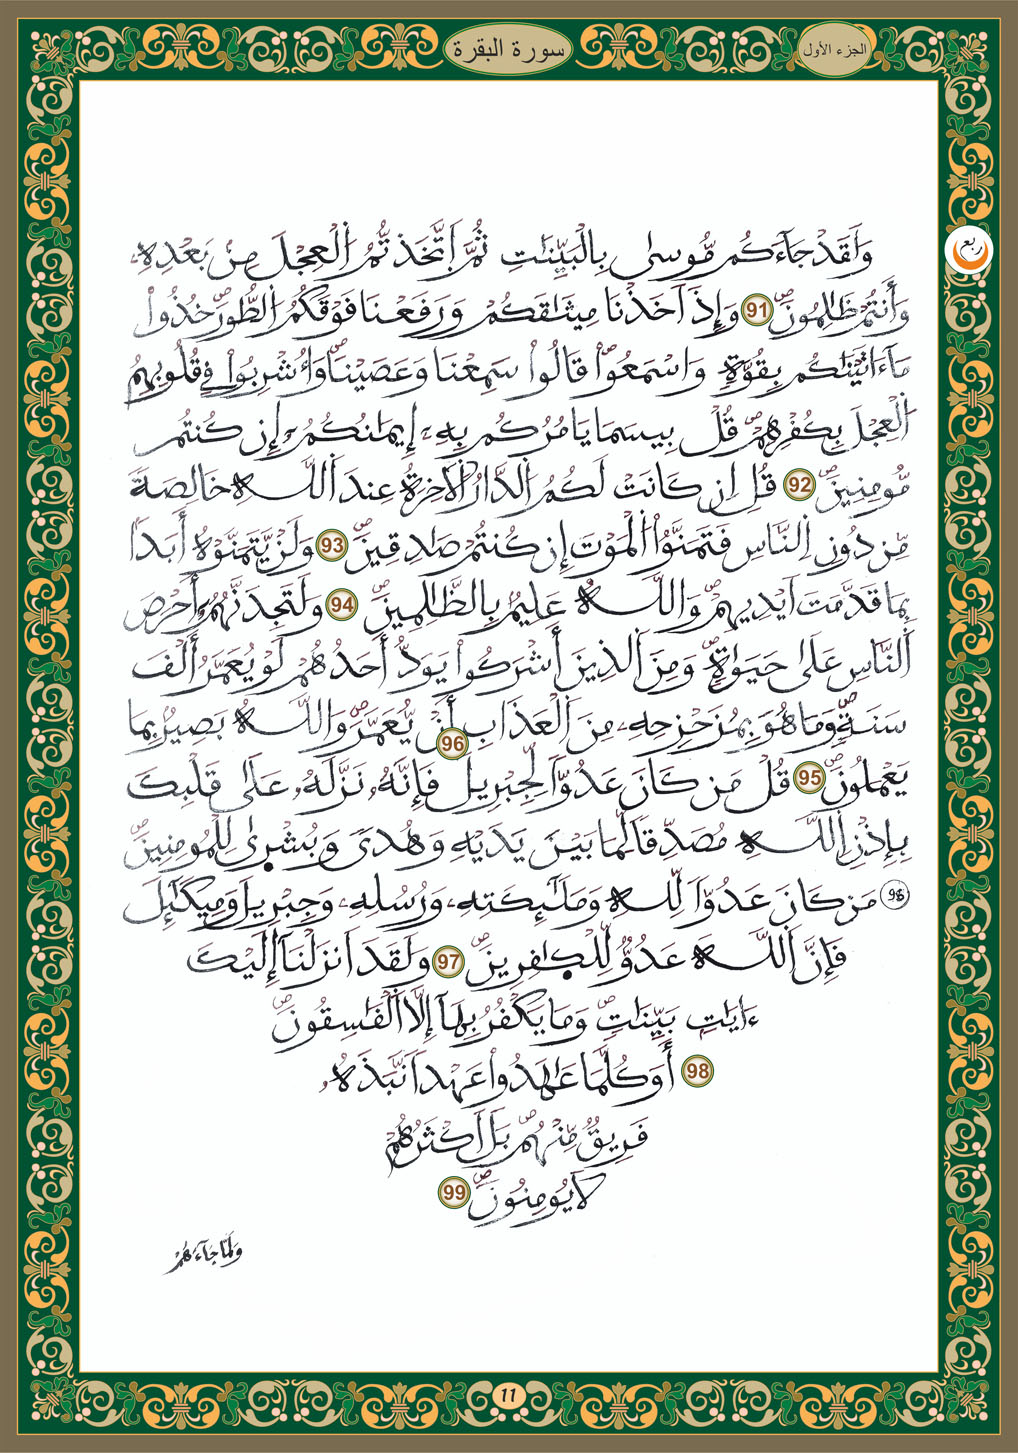 سورة البقرة
الجزء الأول
ربع
وَلَقَدْ جَآءَكُم مُّوسىٰ بِالْبَيِّنَٰتِ ثُمَّ اَتَّخَذتُّمُ الْعِجْلَ مِنۢ بَعْدِهِۦ
وَأَنتُمْ ظَٰلِمُونَۖ 91 وَإِذَ اَخَذْنَا مِيثَٰقَكُمْ وَرَفَعْنَا فَوْقَكُمُ الطُّورَۖ خُذُواْ
مَآ ءَاتَيْنَٰكُم بِقُوَّةٖ وَاسْمَعُواْۖ قَالُواْ سَمِعْنَا وَعَصَيْنَاۖ وَأُشْرِبُواْ فِے قُلُوبِهِمُ
الْعِجْلَ بِكُفْرِهِمْۖ قُلْ بِيسَمَا يَامُرُكُم بِهِۦٓ إِيمَٰنُكُمُۥٓ إِن كُنتُم
مُّومِنِينَۖ 92 قُلِ اِن كَانَتْ لَكُمُ الدَّارُ الَاخِرَةُ عِندَ اَللَّهِ خَالِصَةٗ
مِّن دُونِ اِلنَّاسِ فَتَمَنَّوُاْ الْمَوْتَ إِن كُنتُمْ صَٰدِقِينَۖ 93 وَلَنْ يَّتَمَنَّوْهُ أَبَداَۢ
بِمَا قَدَّمَتَ اَيْدِيهِمْۖ وَاللَّهُ عَلِيمُۢ بِالظَّٰلِمِينَۖ 94 وَلَتَجِدَنَّهُمُۥٓ أَحْرَصَ
اَلنَّاسِ عَلَىٰ حَيَوٰةٖۖ وَمِنَ الذِينَ أَشْرَكُواْ يَوَدُّ أَحَدُهُمْ لَوْ يُعَمَّرُ أَلْفَ
سَنَةٖۖ وَمَا هُوَ بِمُزَحْزِحِهِۦ مِنَ الْعَذَابِ أَنْ يُّعَمَّرَۖ وَاللَّهُ بَصِيرُۢ بِمَا
96
يَعْمَلُونَۖ 95 قُلْ مَن كَانَ عَدُوّاٗ لِّجِبْرِيلَ فَإِنَّهُۥ نَزَّلَهُۥ عَلَىٰ قَلْبِكَ
بِإِذْنِ اِللَّهِ مُصَدِّقاٗ لِّمَا بَيْنَ يَدَيْهِ وَهُدىٗ وَبُشْرىٰ لِلْمُومِنِينَۖ
96 مَن كَانَ عَدُوّاٗ لِّلهِ وَمَلَٰٓئِكَتِهِۦ وَرُسُلِهِۦ وَجِبْرِيلَ وَمِيكَٰٓئِلَ
فَإِنَّ اَللَّهَ عَدُوّٞ لِّلْكٰ۪فِرِينَۖ 97 وَلَقَدَ اَنزَلْنَآ إِلَيْكَ
ءَايَٰتِۢ بَيِّنَٰتٖۖ وَمَا يَكْفُرُ بِهَآ إِلَّا اَلْفَٰسِقُونَۖ
98 أَوَكُلَّمَا عَٰهَدُواْ عَهْداٗ نَّبَذَهُۥ
فَرِيقٞ مِّنْهُمۖ بَلَ اَكْثَرُهُمْ
لَا يُومِنُونَۖ 99
وَلَمَّا جَآءَهُمْ
11